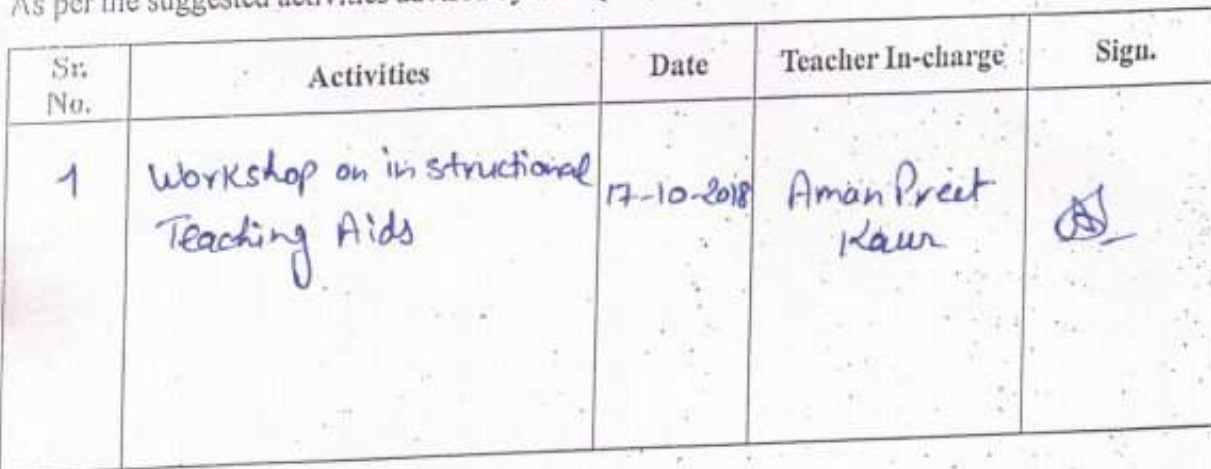 As per the suggested activities
Sr. No. Activities Date Teacher In-charge Sign.
1 Workshop on instructional Teaching Aids 17-10-2018 Aman Preet Kaur